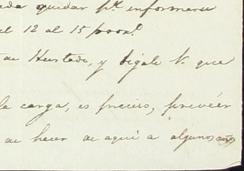 quedar pa. informarse
el 12 al 15 proxo.
de Hurtado, y digale k. que
la carga, es preciso, preveér
de hacer de aqui a algunos